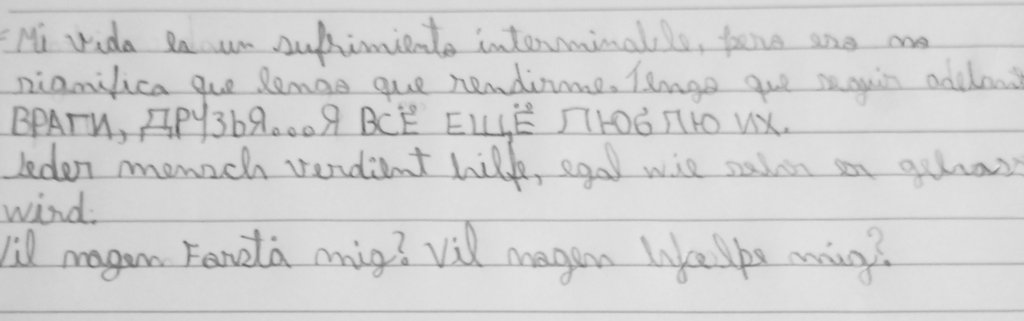 Mi vida es un sufrimiento interminable, pero eso no
significa que tengo que rendirme. Tengo que seguir adelant
ВРАГИ, ДРУЗЬЯ...Я ВСЁ ЕЩЁ ЛЮБЛЮ ИХ.
Jeder mensch verdient hilfe, egal wie sehr er gehass
wird.
Vil nogen Forstå mig? Vil nogen hjælpe mig?